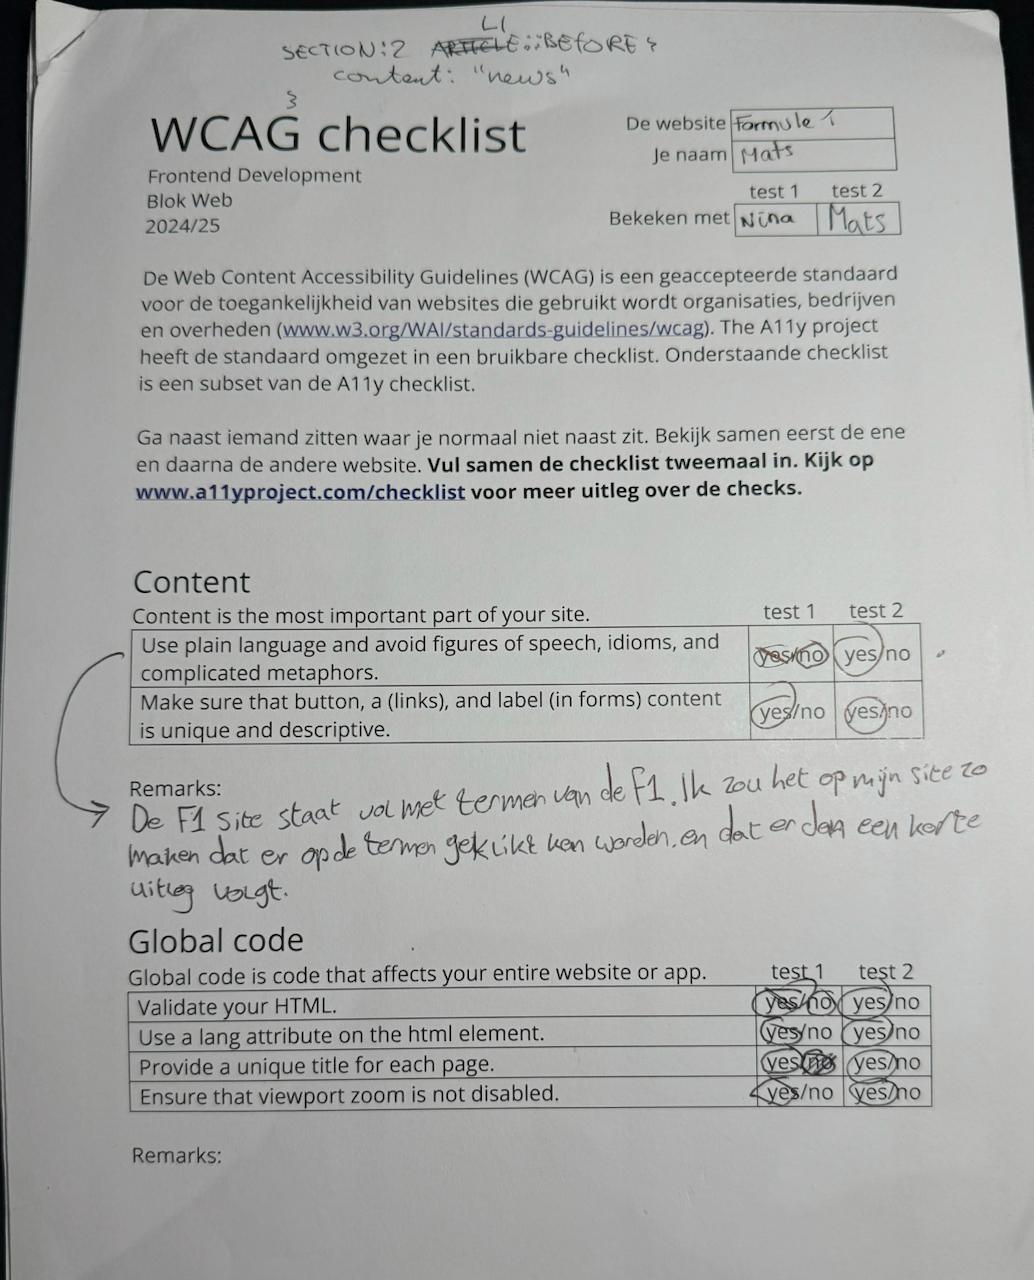 LI
SECTION:2 ARTICLE::BEFORE {
content: "news"
}
WCAG checklist
Frontend Development
Blok Web
2024/25
De website Formule 1
Je naam Mats
test 1 test 2
Bekeken met Nina Mats
De Web Content Accessibility Guidelines (WCAG) is een geaccepteerde standaard
voor de toegankelijkheid van websites die gebruikt wordt organisaties, bedrijven
en overheden (www.w3.org/WAI/standards-guidelines/wcag). The A11y project
heeft de standaard omgezet in een bruikbare checklist. Onderstaande checklist
is een subset van de A11y checklist.
Ga naast iemand zitten waar je normaal niet naast zit. Bekijk samen eerst de ene
en daarna de andere website. Vul samen de checklist tweemaal in. Kijk op
www.a11yproject.com/checklist voor meer uitleg over de checks.
Content
Content is the most important part of your site. test 1 test 2
Use plain language and avoid figures of speech, idioms, and
complicated metaphors. yes/no yes/no
Make sure that button, a (links), and label (in forms) content
is unique and descriptive. yes/no yes/no
Remarks:
De F1 site staat vol met termen van de F1. Ik zou het op mijn site zo
maken dat er op de termen geklikt kan worden, en dat er dan een korte
uitleg volgt.
Global code
Global code is code that affects your entire website or app. test 1 test 2
Validate your HTML. yes/no yes/no
Use a lang attribute on the html element. yes/no yes/no
Provide a unique title for each page. yes/no yes/no
Ensure that viewport zoom is not disabled. yes/no yes/no
Remarks: